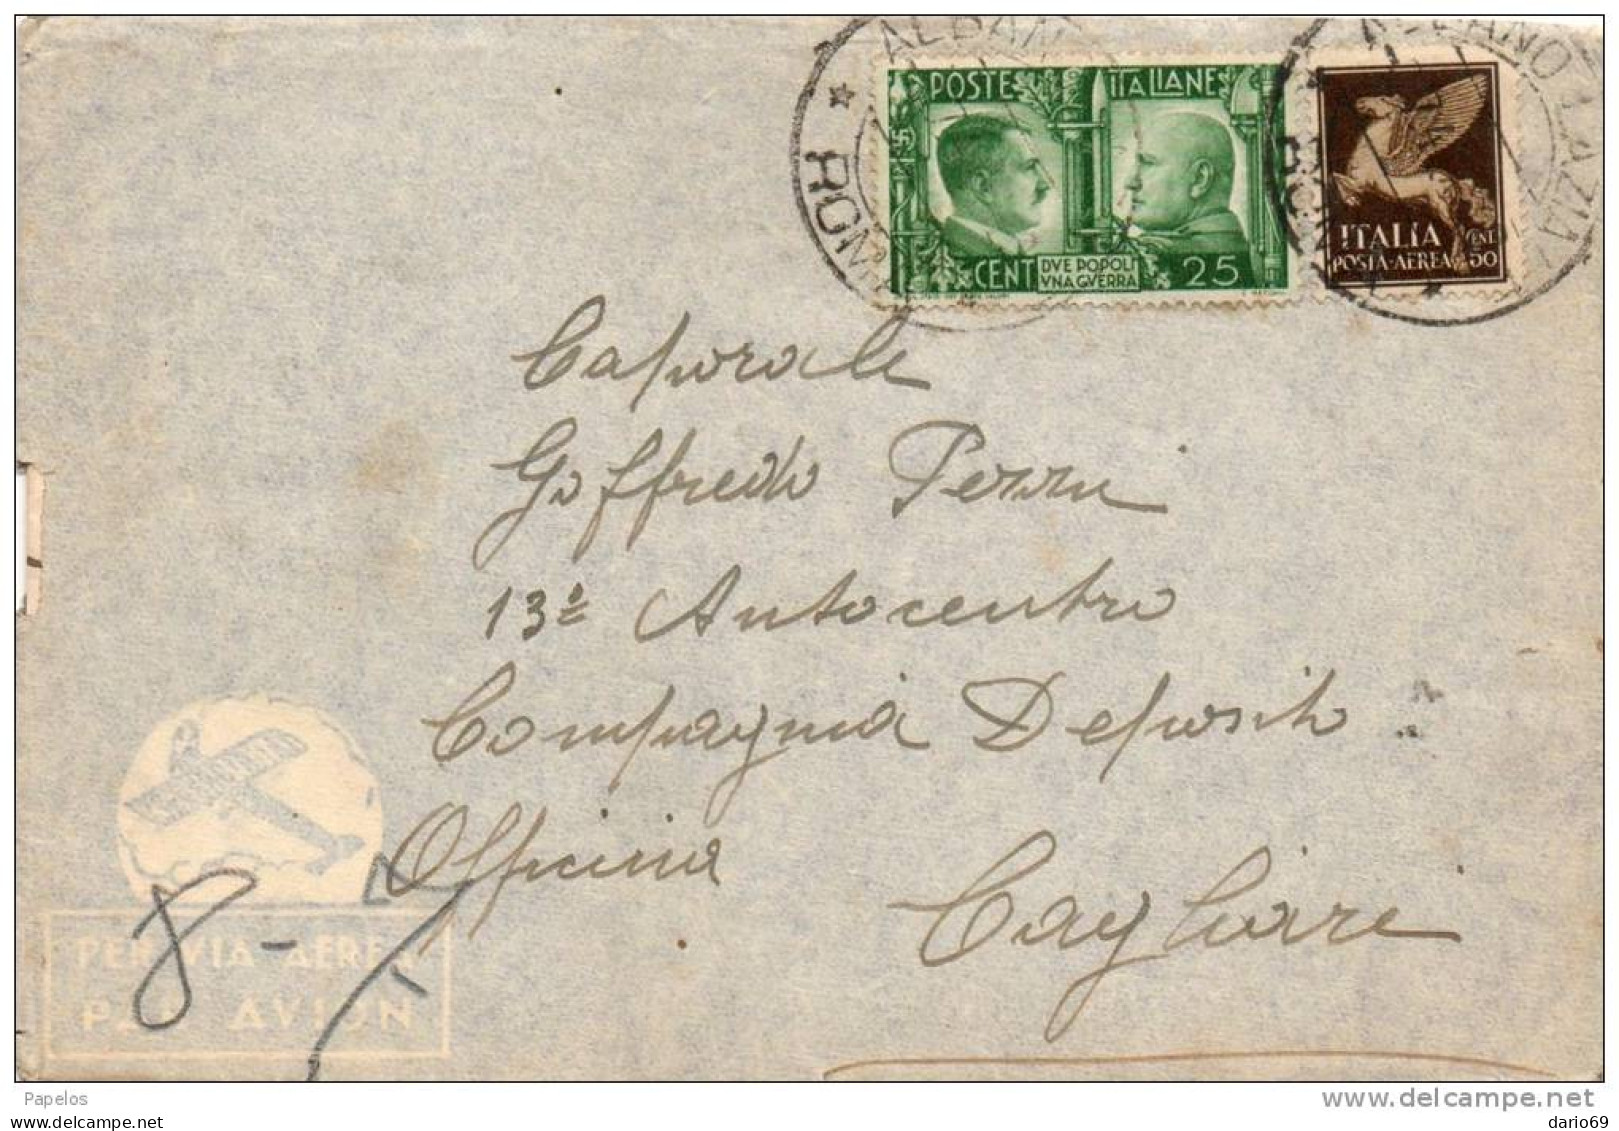 ALBANO LAZIALE
ROMA
POSTE ITALIANE
CENT DVE POPOLI VNA GVERRA 25
ITALIA CENT
POSTA-AEREA 50
Caporale
Goffredo
13º Autocentro
Compagnia Deposito
Officina
Cagliari
8-
PER VIA AEREA
PAR AVION
Papelos
www.delcampe.net
dario69